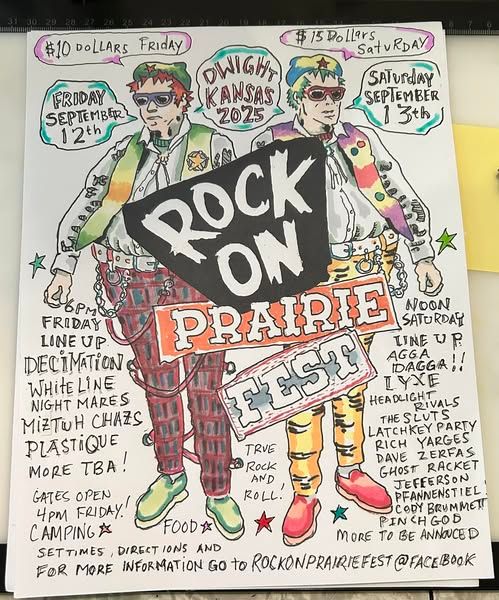 $10 DOLLARS FRIDAY
$15 DOLLARS
SATURDAY
DWIGHT
KANSAS
2025
FRIDAY
SEPTEMBER
12th
SATURDAY
SEPTEMBER
13th
ROCK
ON
PRAIRIE
FEST
6PM
FRIDAY
LINE UP
DECIMATION
WHITE LINE
NIGHT MARES
MIZTUH CHAZS
PLASTIQUE
MORE TBA!
GATES OPEN
4PM FRIDAY!
CAMPING
FOOD
TRUE
ROCK
AND
ROLL!
NOON
SATURDAY
LINE UP
AGGA
IDAGGA!!
LYXE
HEADLIGHT
RIVALS
THE SLUTS
LATCHKEY PARTY
RICH YARGES
DAVE ZERFAS
GHOST RACKET
JEFFERSON
PFANNENSTIEL
CODY BRUMMETT
PINCH GOD
MORE TO BE ANNOUCED
SET TIMES, DIRECTIONS AND
FOR MORE INFORMATION GO TO ROCKONPRAIRIEFEST@FACEBOOK